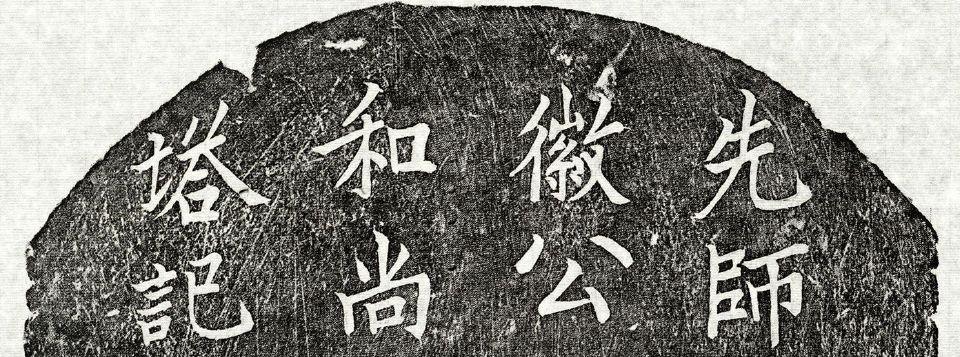 先師
徽公
和尚
塔記